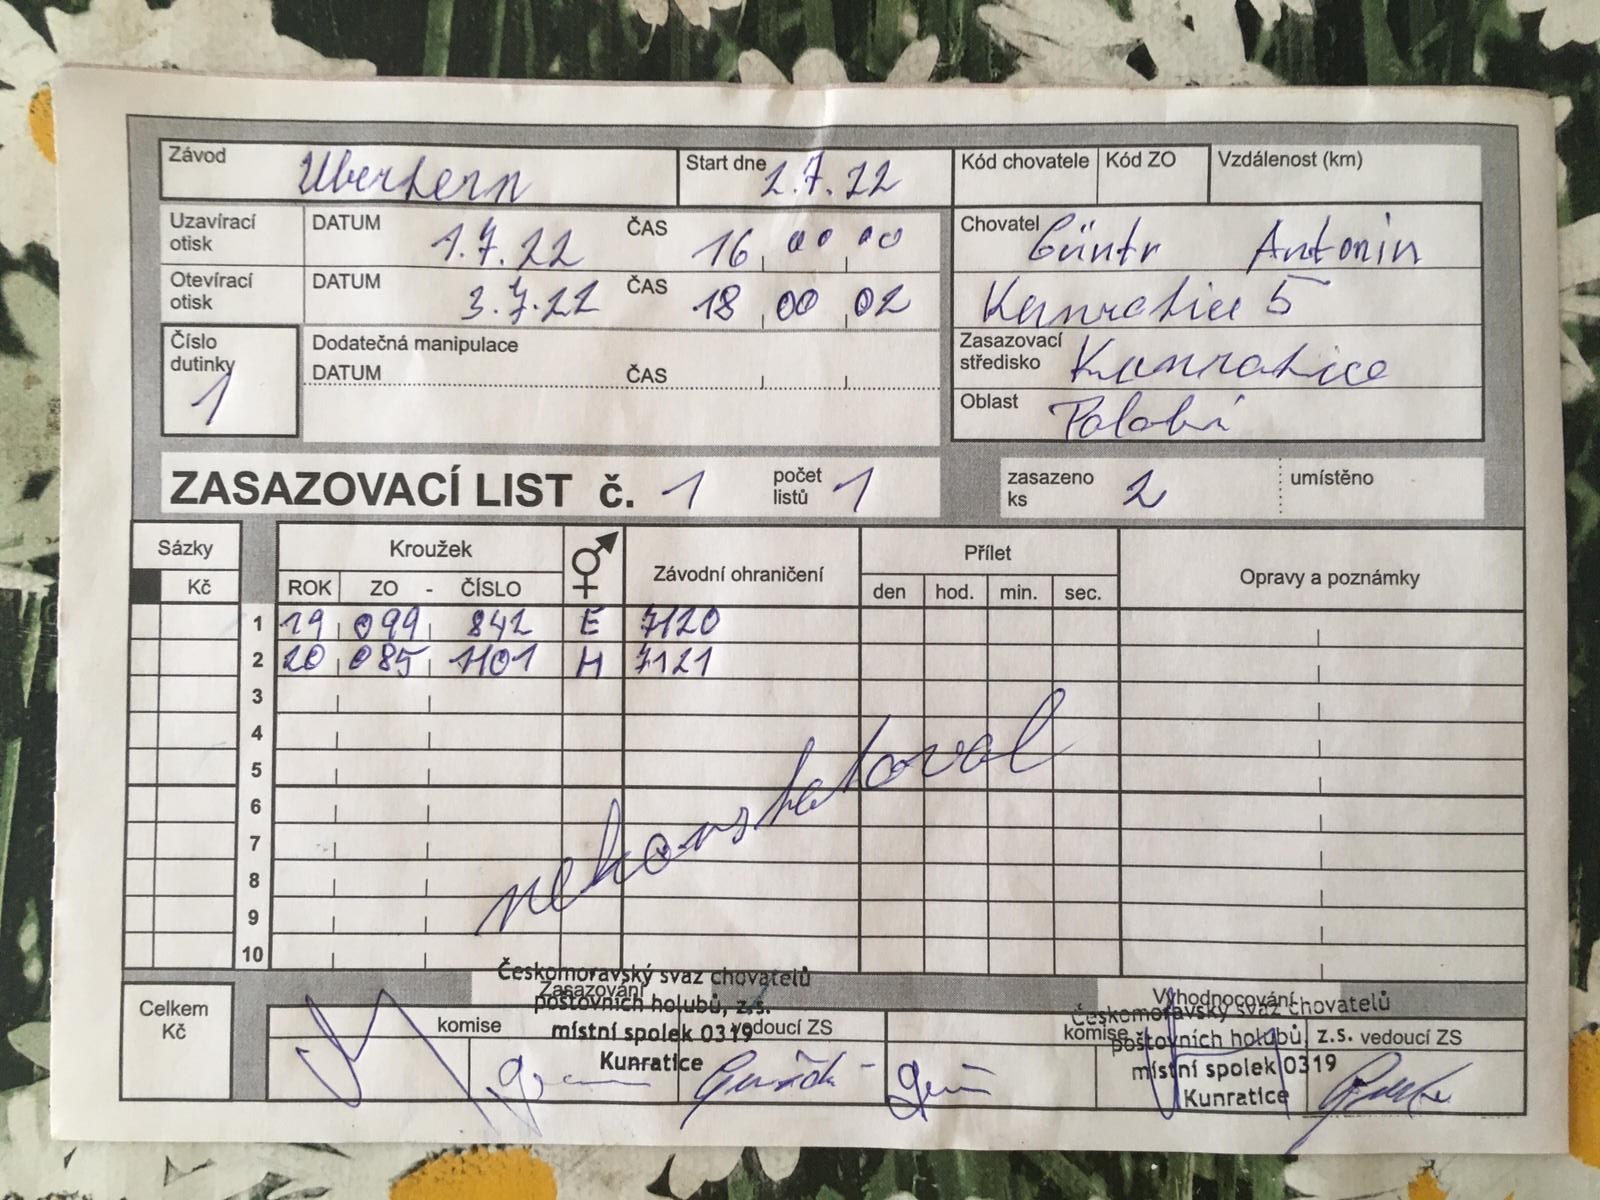 Závod Uberhern Start dne 2.7.22 Kód chovatele Kód ZO Vzdálenost (km)
Uzavírací otisk DATUM 1.7.22 ČAS 16 00 00
Chovatel Güntr Antonín
Otevírací otisk DATUM 3.7.22 ČAS 18 00 02
Kunratice 5
Číslo dutinky 1
Dodatečná manipulace
DATUM ČAS
Zasazovací středisko Kunratice
Oblast Polabí
ZASAZOVACÍ LIST č. 1 počet listů 1 zasazeno ks 2 umístěno
Sázky Kroužek Závodní ohraničení Přílet Opravy a poznámky
Kč ROK ZO - ČÍSLO den hod. min. sec.
1 19 099 842 E 7120
2 20 085 1101 H 7121
3
4
5
6
7
8
9
10
nekonstatoval
Celkem Kč
Zasazování
komise vedoucí ZS
Českomoravský svaz chovatelů
poštovních holubů, z.s.
místní spolek 0319
Kunratice
Vyhodnocování
komise vedoucí ZS
Českomoravský svaz chovatelů
poštovních holubů, z.s.
místní spolek 0319
Kunratice